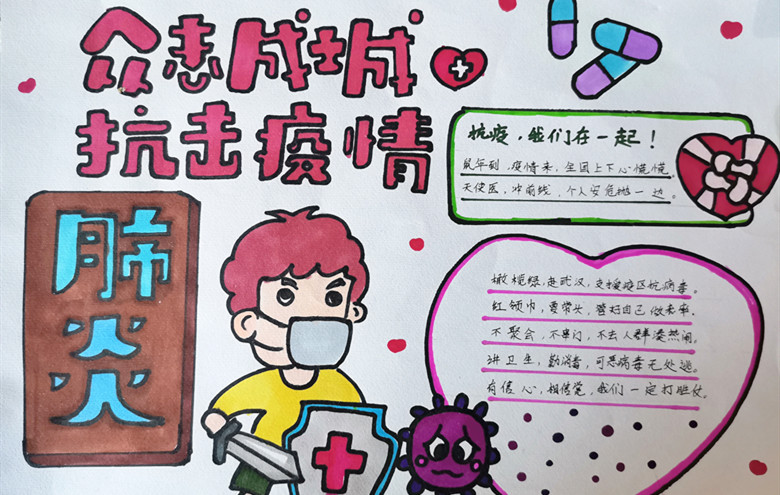 众志成城
抗击疫情
肺炎
抗疫，我们在一起！
鼠年到，疫情来，全国上下心慌慌。
天使医，冲前线，个人安危抛一边。
橄榄绿，赴武汉，支援疫区抗病毒。
红领巾，要带头，管好自己做表率。
不聚会，不串门，不去人群凑热闹。
讲卫生，勤消毒，可恶病毒无处逃。
有信心，相信党，我们一定打胜仗。